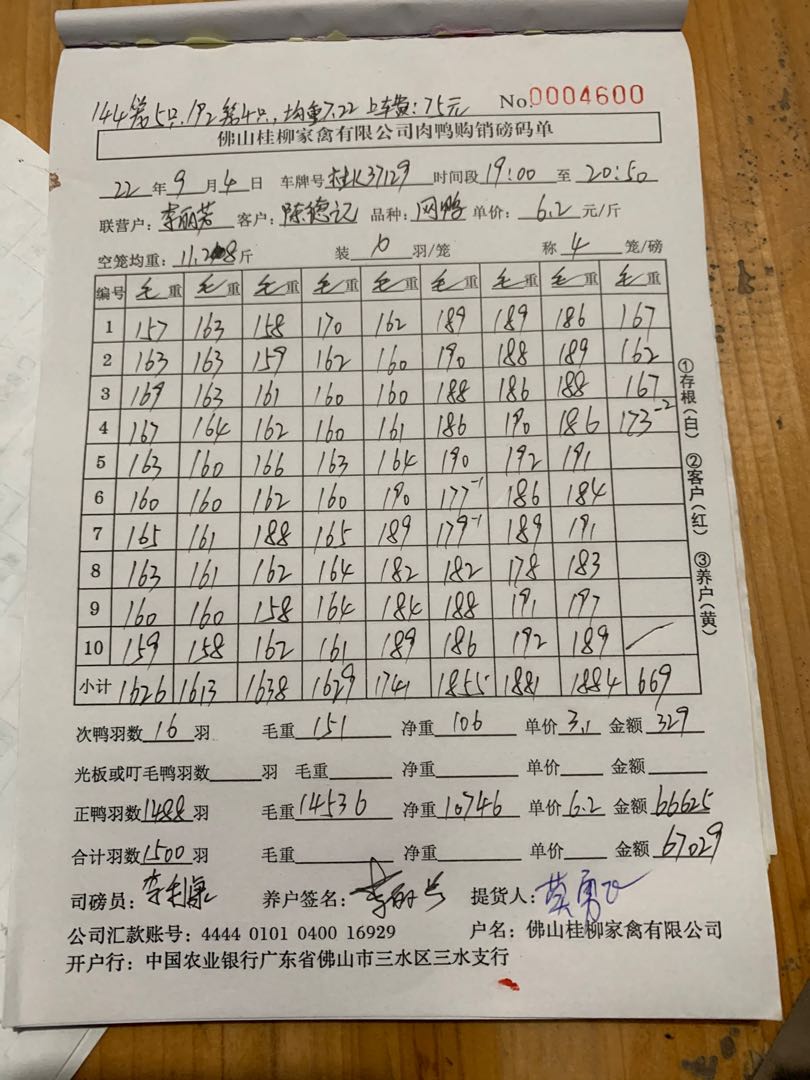 144箩5只,192箩4只,均重7.22 上车费:75元 No.0004600
佛山桂柳家禽有限公司肉鸭购销磅码单
22年9月4日 车牌号桂K37129 时间段19:00至20:50
联营户:李丽芳 客户:陈德记 品种:网鸭 单价:6.2元/斤
空笼均重:11.28斤 装 羽/笼 称4笼/磅
编号 毛重 毛重 毛重 毛重 毛重 毛重 毛重 毛重 毛重
1 157 163 158 170 162 189 189 186 167
2 163 163 159 162 160 190 188 189 162
3 169 163 161 160 160 188 186 188 167
4 167 164 162 160 161 186 190 186 173-2
5 163 160 166 163 164 190 192 191
6 160 160 162 160 190 177-1 186 184
7 165 161 188 165 189 179-1 189 191
8 163 161 162 164 182 182 178 183
9 160 160 158 164 184 188 191 197
10 159 158 162 161 189 186 192 189 /
小计 1626 1613 1638 1629 1741 1855 1881 1884 669
次鸭羽数16羽 毛重151 净重106 单价3.1 金额329
光板或叮毛鸭羽数 羽 毛重 净重 单价 金额
正鸭羽数1488羽 毛重14536 净重10746 单价6.2 金额66625
合计羽数1500羽 毛重 净重 单价 金额67029
司磅员:李利康 养户签名:李丽芳 提货人:莫勇
公司汇款账号:4444 0101 0400 16929 户名:佛山桂柳家禽有限公司
开户行:中国农业银行广东省佛山市三水区三水支行
①存根(白) ②客户(红) ③养户(黄)